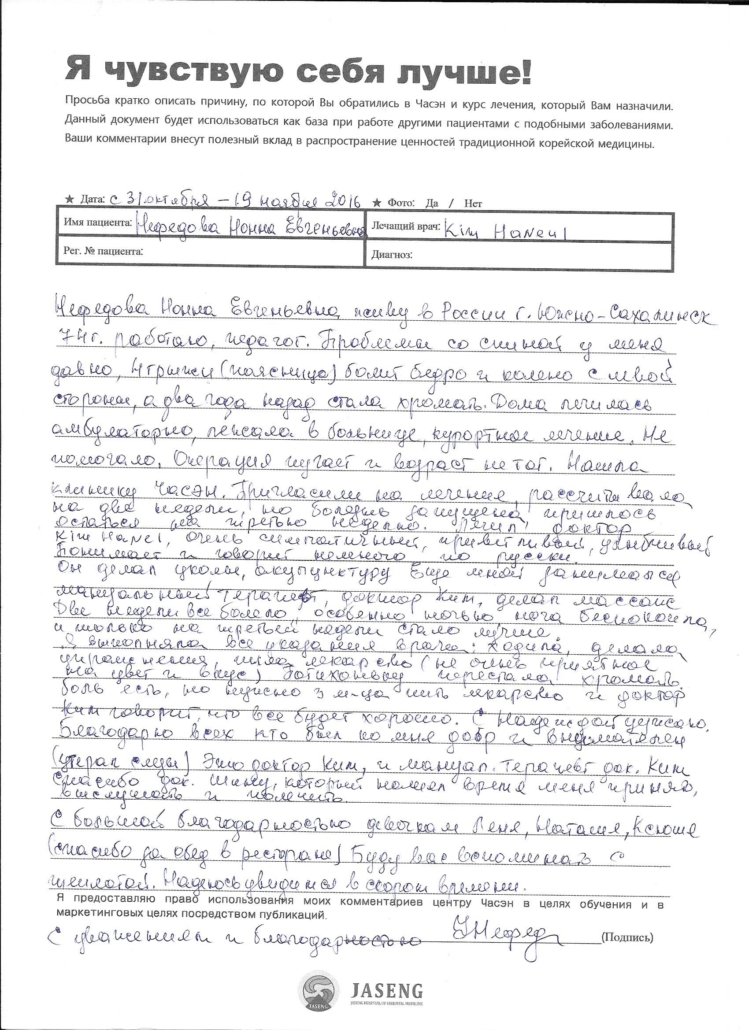 Я чувствую себя лучше!
Просьба кратко описать причину, по которой Вы обратились в Часэн и курс лечения, который Вам назначили.
Данный документ будет использоваться как база при работе другими пациентами с подобными заболеваниями.
Ваши комментарии внесут полезный вклад в распространение ценностей традиционной корейской медицины.
★ Дата: с 31 октября – 19 ноября 2016 ★ Фото: Да / Нет
Имя пациента: Нефедова Нонна Евгеньевна Лечащий врач: Kim Haneul
Рег. № пациента: Диагноз:
Нефедова Нонна Евгеньевна, живу в России г. Южно-Сахалинск
74 г. работаю, педагог. Проблемы со спиной у меня
давно, Игрыжи (поясница) болит бедро и колено с левой
стороны, а два года назад стала хромать. Дома лечилась
амбулаторно, лежала в больнице, курортное лечение. Не
помогало. Операция пугает и возраст не тот. Нашла
клинику Часэн. Пригласили на лечение, рассчитывала
на две недели, но болезнь запущена, пришлось
остаться на третью неделю. Лечил доктор
Kim Hanel, очень симпатичный, приветливый, улыбчивый
Понимает и говорит немного по русски.
Он делал уколы, акупунктуру Еще мной занимался
мануальный терапевт доктор Ким, делал массаж
Две недели все болело, особенно ночью, нога беспокоила,
и только на третьей недели стало лучше.
Я выполняла все указания врача: ходила, делала
упражнения, пила лекарство (не очень приятное
на цвет и вкус) Потихоньку перестала хромать
боль есть, но нужно 3 м-ца пить лекарство и доктор
Ким говорит, что все будет хорошо. С надеждой уезжаю.
Благодарю всех кто был ко мне добр и внимателен
(утирая слезы) Это доктор Ким, и мануал. терапевт док. Ким
Спасибо док. Шину, который нашел время меня принять,
выслушать и полечить.
С большой благодарностью девочкам Лене, Наташе, Ксюше
(спасибо за обед в ресторане) Буду вас вспоминать с
теплотой. Надеюсь увидимся в скором времени.
Я предоставляю право использования моих комментариев центру Часэн в целях обучения и в
маркетинговых целях посредством публикаций.
С уважением и благодарностью Нефед (Подпись)
JASENG